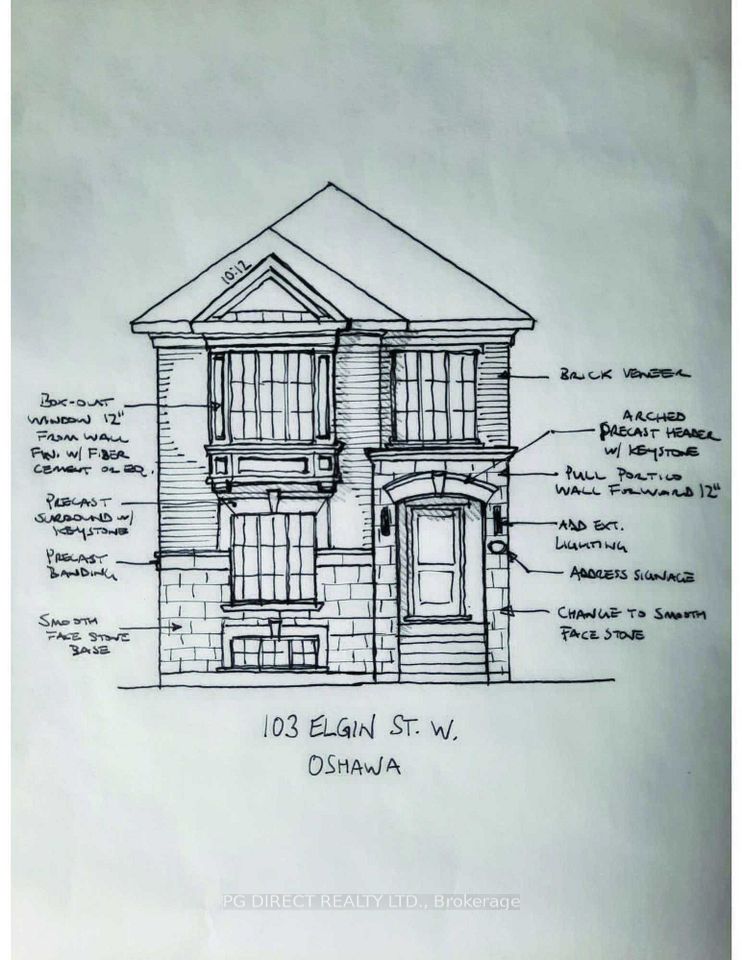 10:12
BOX-OUT
WINDOW 12"
FROM WALL
FIN. W/ FIBER
CEMENT OR EQ.
PRECAST
SURROUND W/
KEYSTONE
PRECAST
BANDING
SMOOTH
FACE STONE
BASE
BRICK VENEER
ARCHED
PRECAST HEADER
W/ KEYSTONE
PULL PORTICO
WALL FORWARD 12"
ADD EXT.
LIGHTING
ADDRESS SIGNAGE
CHANGE TO SMOOTH
FACE STONE
103 ELGIN ST. W.
OSHAWA
PG DIRECT REALTY LTD., Brokerage